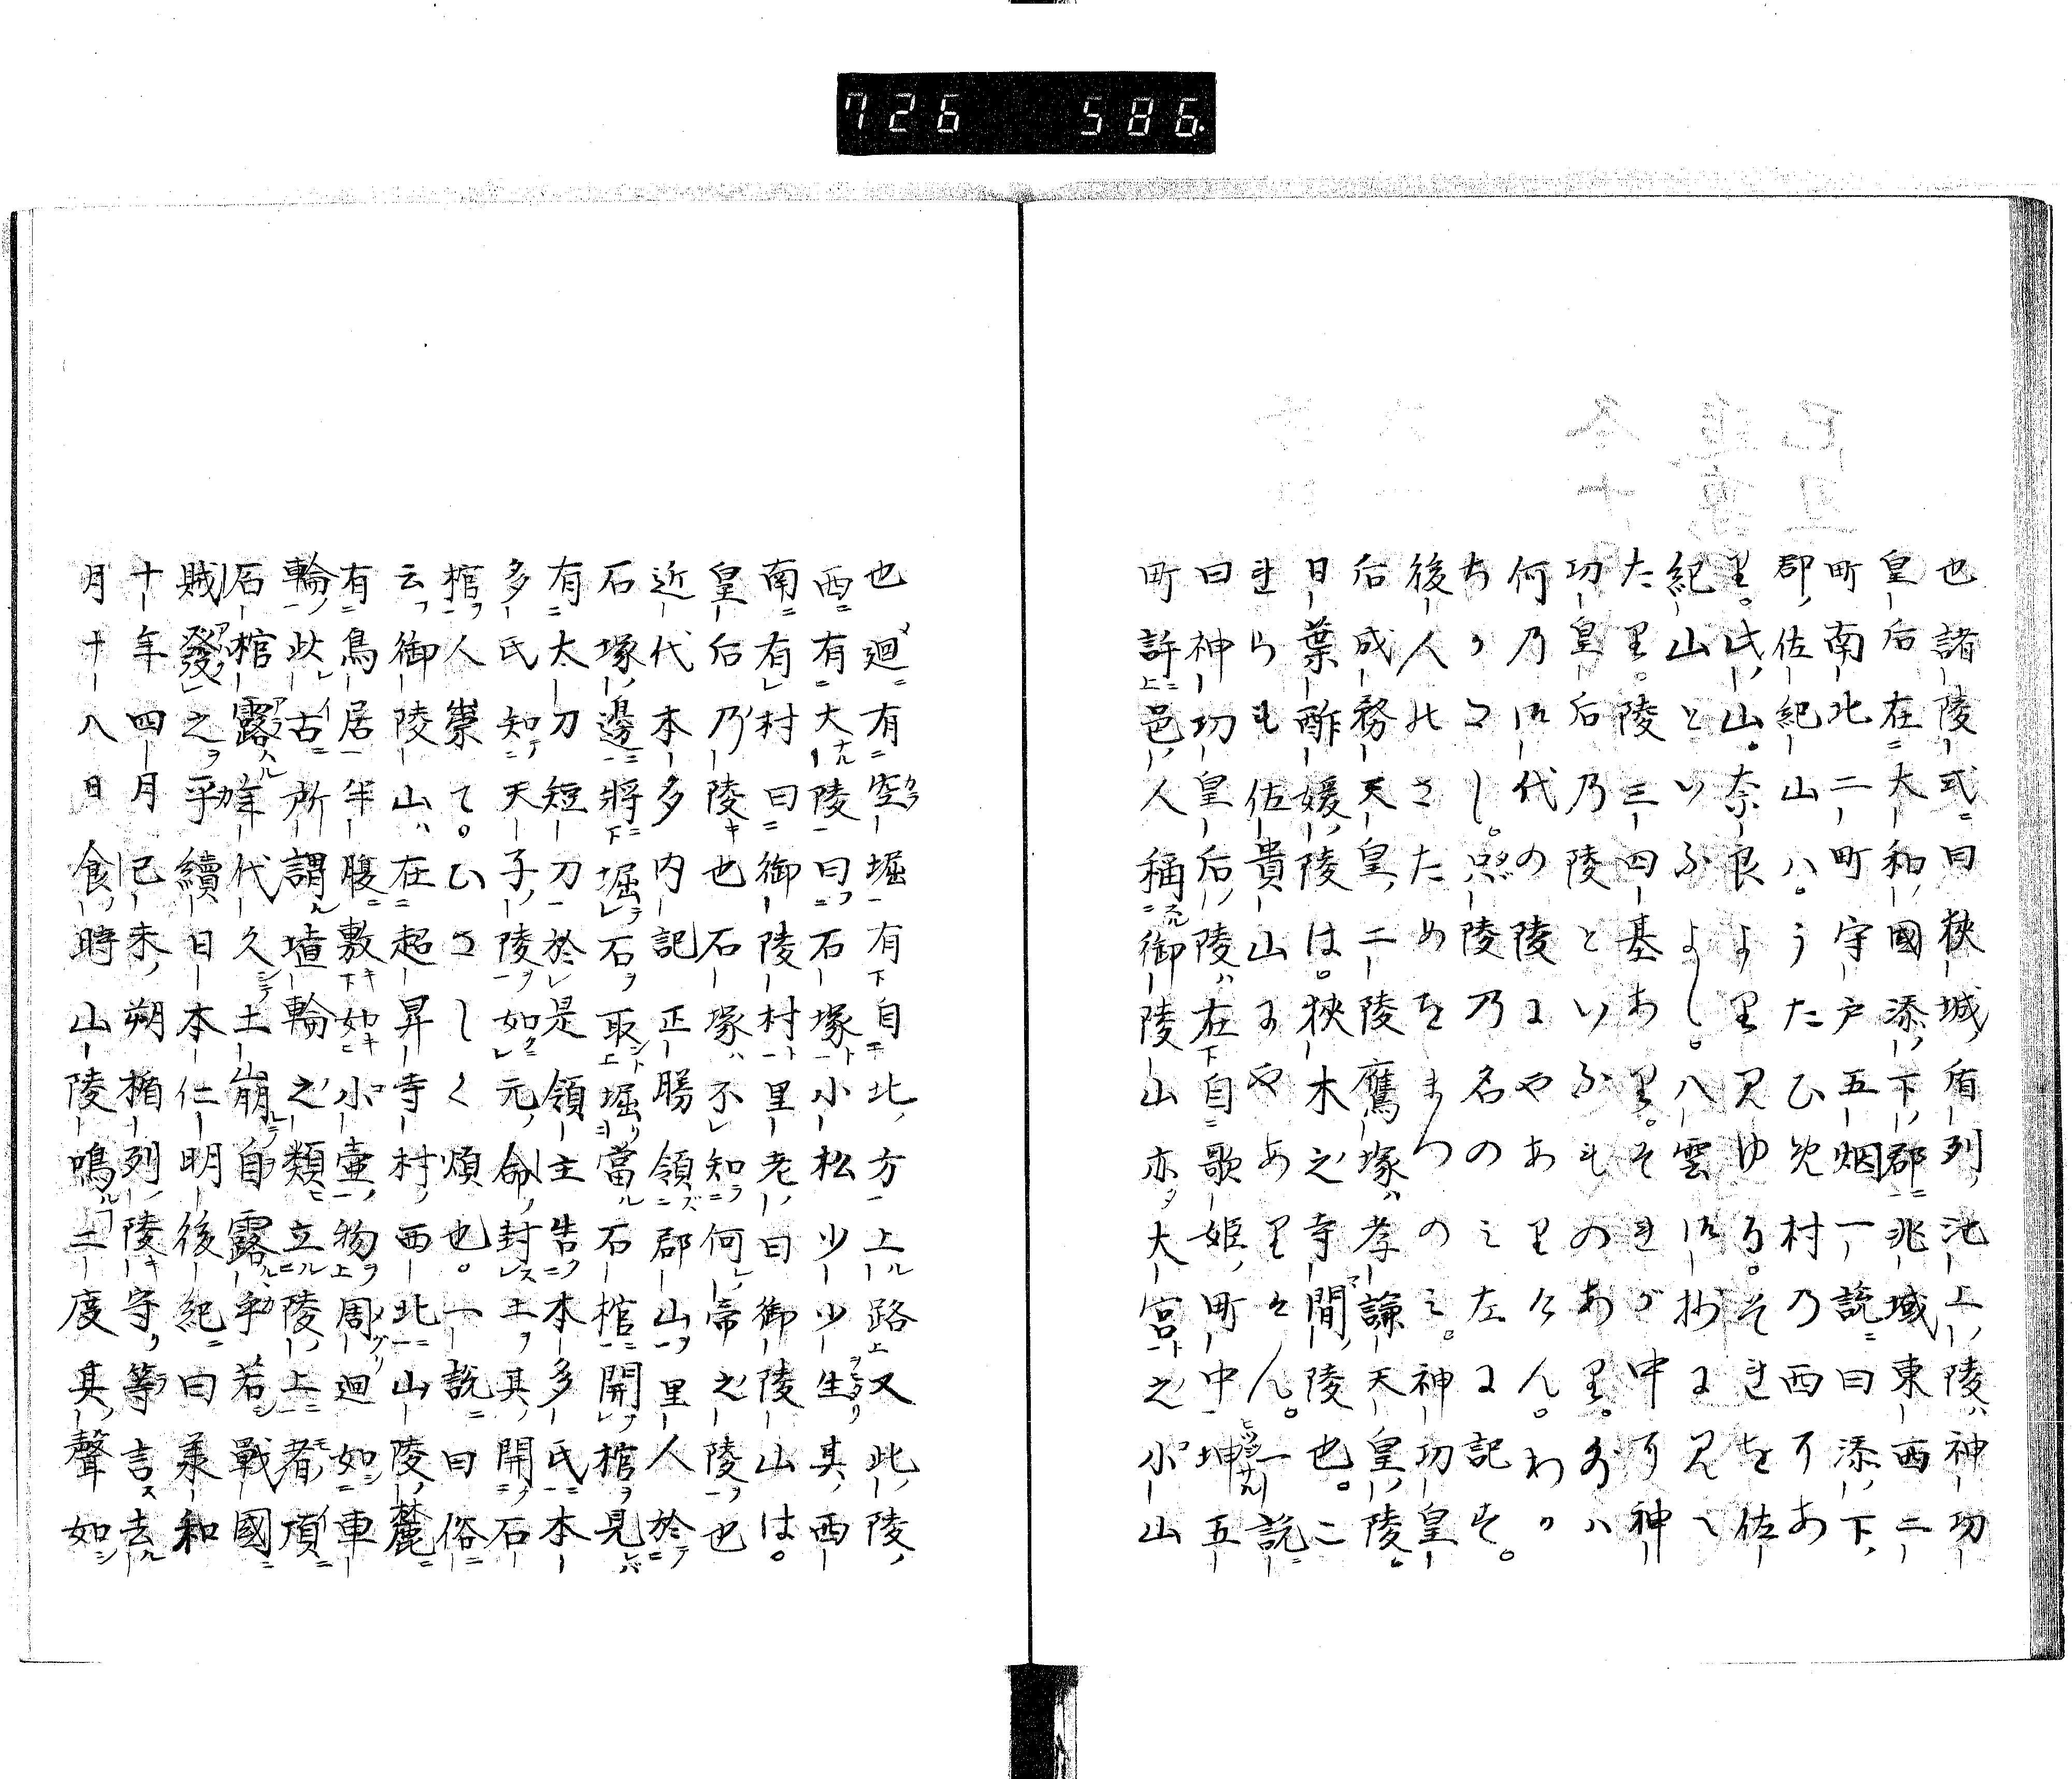 726 586.
也諸陵式曰狹城盾列池上陵ハ神功
皇后在大和國添下郡兆域東西二
町南北二町守戸五烟一説曰添下
郡佐紀山ハ。うたひ姫村乃西アあ
里。此山。奈良より見ゆる。それを佐
紀山といふよし。八雲御抄に見へ
た里。陵三四基あ里。それが中ア神
功皇后乃陵といふものあ里。多ハ
何乃御代の陵にやありけん。わか
ちかたし。只陵乃名のみ左に記す。
後人のさためをまつのみ。神功皇
后成務天皇二陵鷹塚ハ孝謙天皇陵。
日葉酢媛陵は。狹木之寺間陵也。こ
れらも佐貴山にやあ里けん。一説
曰神功皇后陵ハ在自歌姫町中坤五
町許邑人稱御陵山亦大宮之小山
也廻有空堀有自北方上路又此陵
西有大陵曰石塚小松少少生其西
南有村曰御陵村里老曰御陵山は。
皇后乃陵也石塚ハ不知何帝之陵也
近代本多内記正勝領郡山里人於
石塚邊將堀石取堀當石棺開棺見
有太刀短刀於是領主告本多氏本
多氏知天子陵如元命封土其開石
棺人祟て。ひさしく煩也。一説曰俗
云御陵山ハ在超昇寺村西北山陵麓
有鳥居半腹敷如小壷物周廻如車
輪此古所謂埴輪之類立陵上者頂
石棺露年代久土崩自露乎若戰國
賊發之乎續日本仁明後紀曰羕和
十年四月己未朔楯列陵守等言去
月十八日食時山陵鳴二度其聲如